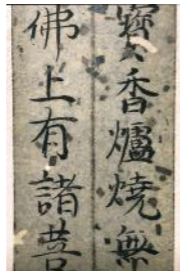 寶香爐燒無
佛上有諸菩